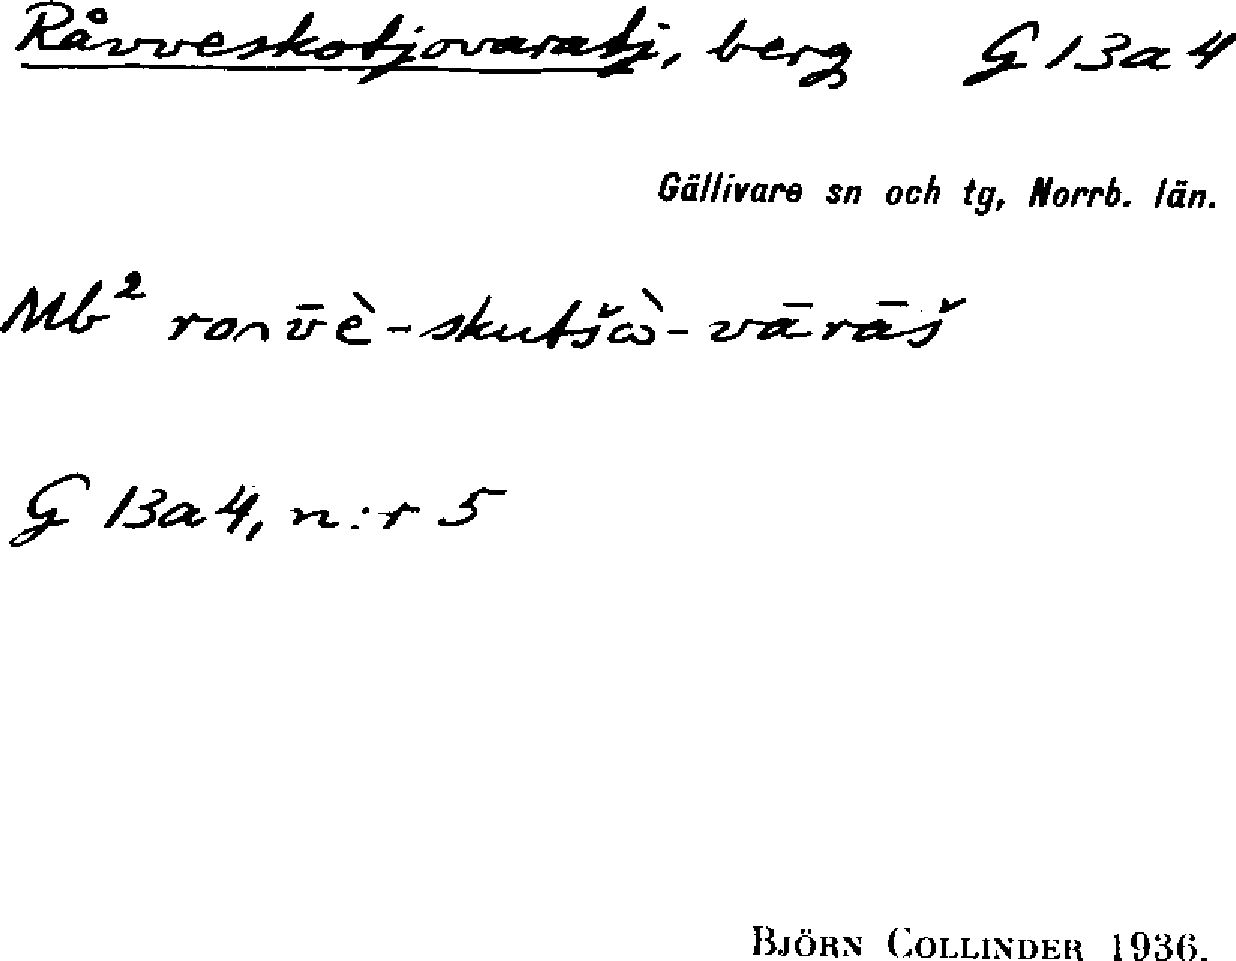 Råvveskotjovaratj, berg G 13a4
Gällivare sn och tg, Norrb. län.
Mb² ronv̄ὲ-skutšὼ-vārāš
G 13a4, n:r 5
BJÖRN COLLINDER 1936.